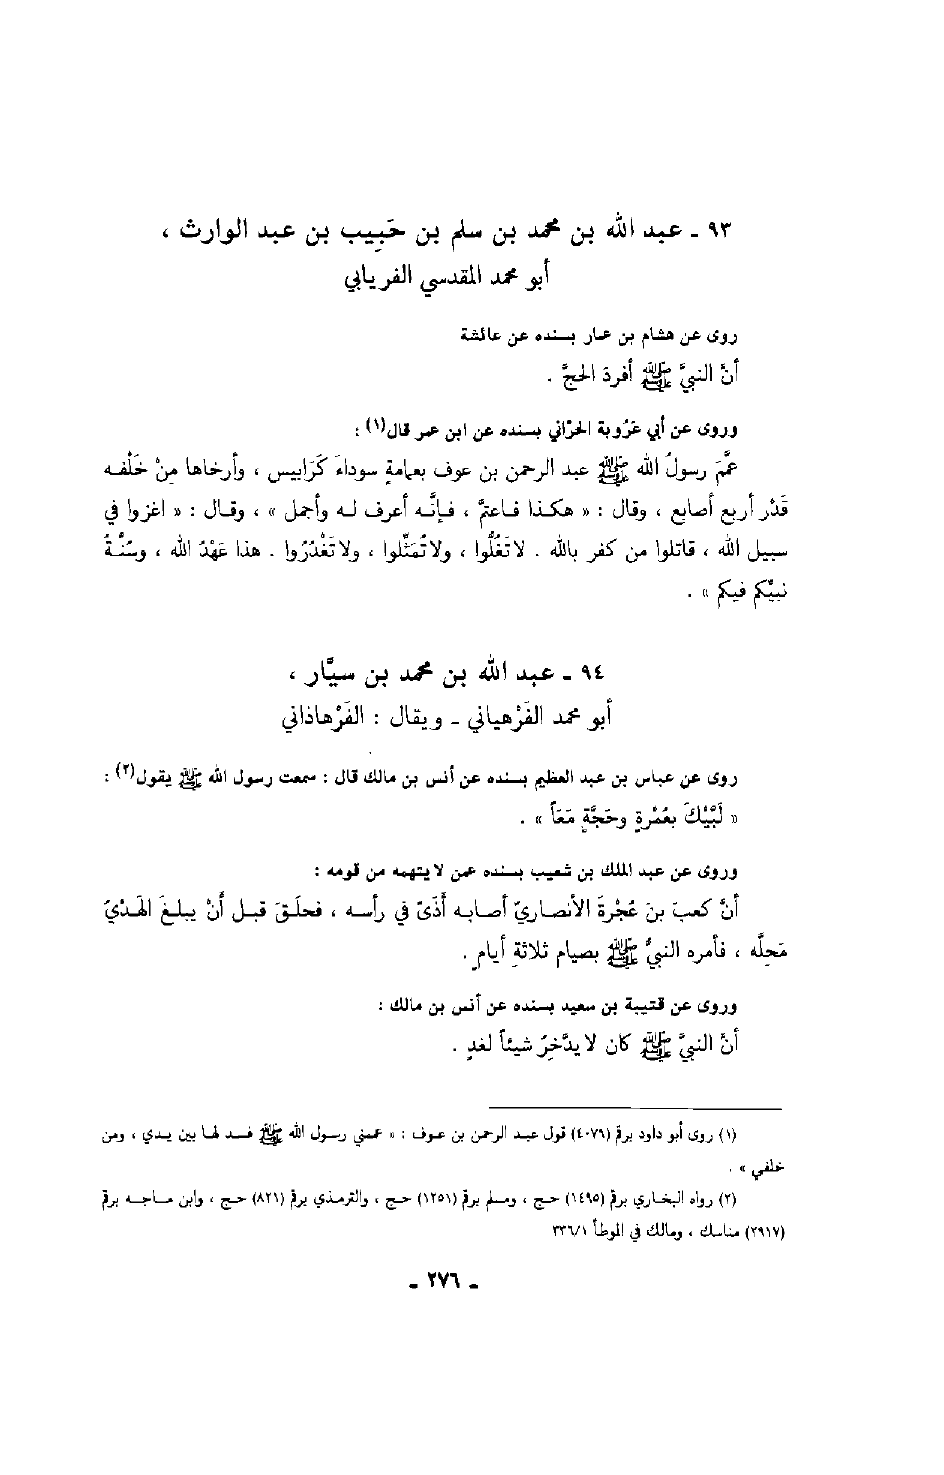 ٩٣ ـ عبد الله بن محمد بن سلم بن حَبِيب بن عبد الوارث ،
أبو محمد المقدسي الفريابي
روى عن هشام بن عمار بسنده عن عائشة
أنَّ النبيَّ ﷺ أفردَ الحجَّ .
وروى عن أبي عَرُوبة الحرّاني بسنده عن ابن عمر قال(١) :
عمَّمَ رسولُ الله ﷺ عبد الرحمن بن عوف بعمامةٍ سوداءَ كَرَابيس ، وأرخاها مِنْ خَلْفه
قَدْر أربع أصابع ، وقال : « هكذا فاعتمَّ ، فإنَّه أعرف له وأجمل » ، وقال : « اغزوا في
سبيل الله ، قاتلوا من كفر بالله . لا تَغُلُّوا ، ولا تُمَثِّلوا ، ولا تَغْدُرُوا . هذا عَهْدُ الله ، وسُنَّةُ
نبيِّكم فيكم » .
٩٤ ـ عبد الله بن محمد بن سيَّار ،
أبو محمد الفَرْهياني ـ ويقال : الفَرْهاذاني
روى عن عباس بن عبد العظيم بسنده عن أنس بن مالك قال : سمعت رسول الله ﷺ يقول(٢) :
« لَبَّيْكَ بعُمْرةٍ وحَجَّةٍ مَعَاً » .
وروى عن عبد الملك بن شعيب بسنده عمن لا يتهمه من قومه :
أنَّ كعبَ بنَ عُجْرةَ الأنصاريّ أصابه أذًىً في رأسه ، فحلَقَ قبل أنْ يبلغَ الهَدْيُ
مَحِلَّه ، فأمره النبيُّ ﷺ بصيام ثلاثةِ أيامٍ .
وروى عن قتيبة بن سعيد بسنده عن أنس بن مالك :
أنَّ النبيَّ ﷺ كان لا يدَّخِرُ شيئاً لغدٍ .
(١) روى أبو داود برقم (٤٠٧٩) قول عبد الرحمن بن عوف : « عممني رسول الله ﷺ فسدلها بين يدي ، ومن
خلفي » .
(٢) رواه البخاري برقم (١٤٩٥) حج ، ومسلم برقم (١٢٥١) حج ، والترمذي برقم (٨٢١) حج ، وابن ماجه برقم
(٢٩١٧) مناسك ، ومالك في الموطأ ٣٣٦/١
ـ ٢٧٦ ـ